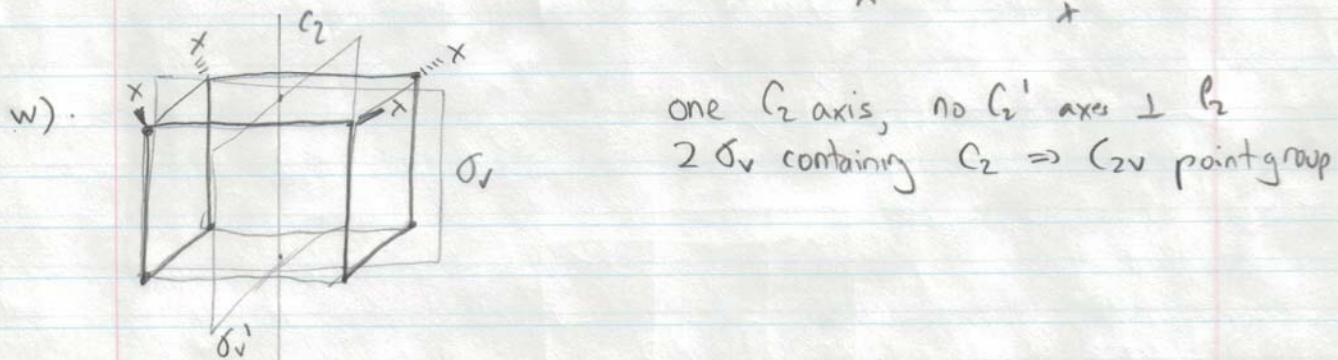 x
C₂
x
x
x
x
w).
σᵥ
σᵥ'
one C₂ axis, no C₂' axes ⊥ C₂
2 σᵥ containing C₂ => C₂ᵥ pointgroup